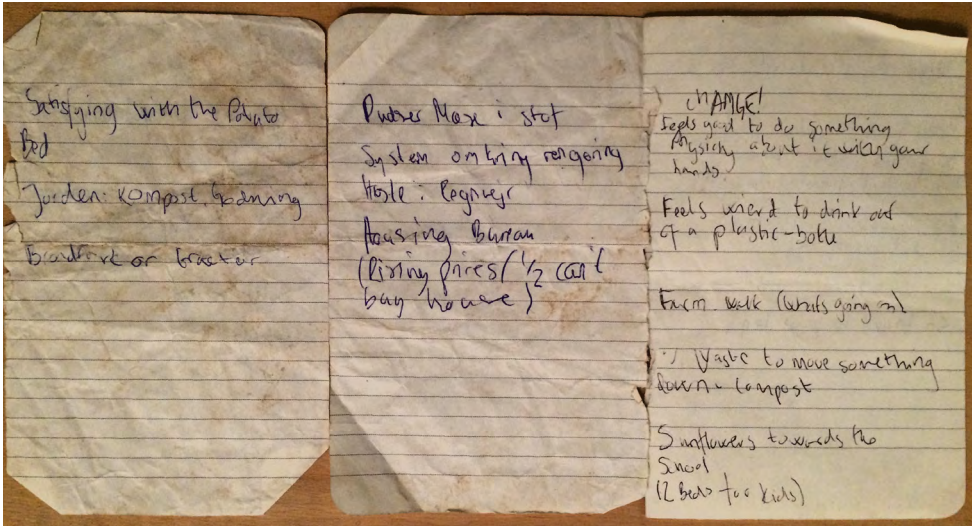 Satisfying with the Potato
Bed
Jorden: Kompost, Godning
or
i stof
System omkring rengøring
Høste: Regnvejr
Housing Bureau
(Rising prices / 1/2 can't
buy house)
CHANGE!
Feels good to do something
about it with your
hands.
Feels weird to drink out
of a plastic-bottle
Farm walk (what's going on)
to move something
down - compost
Sunflowers towards the
School
(2 Beds for kids)